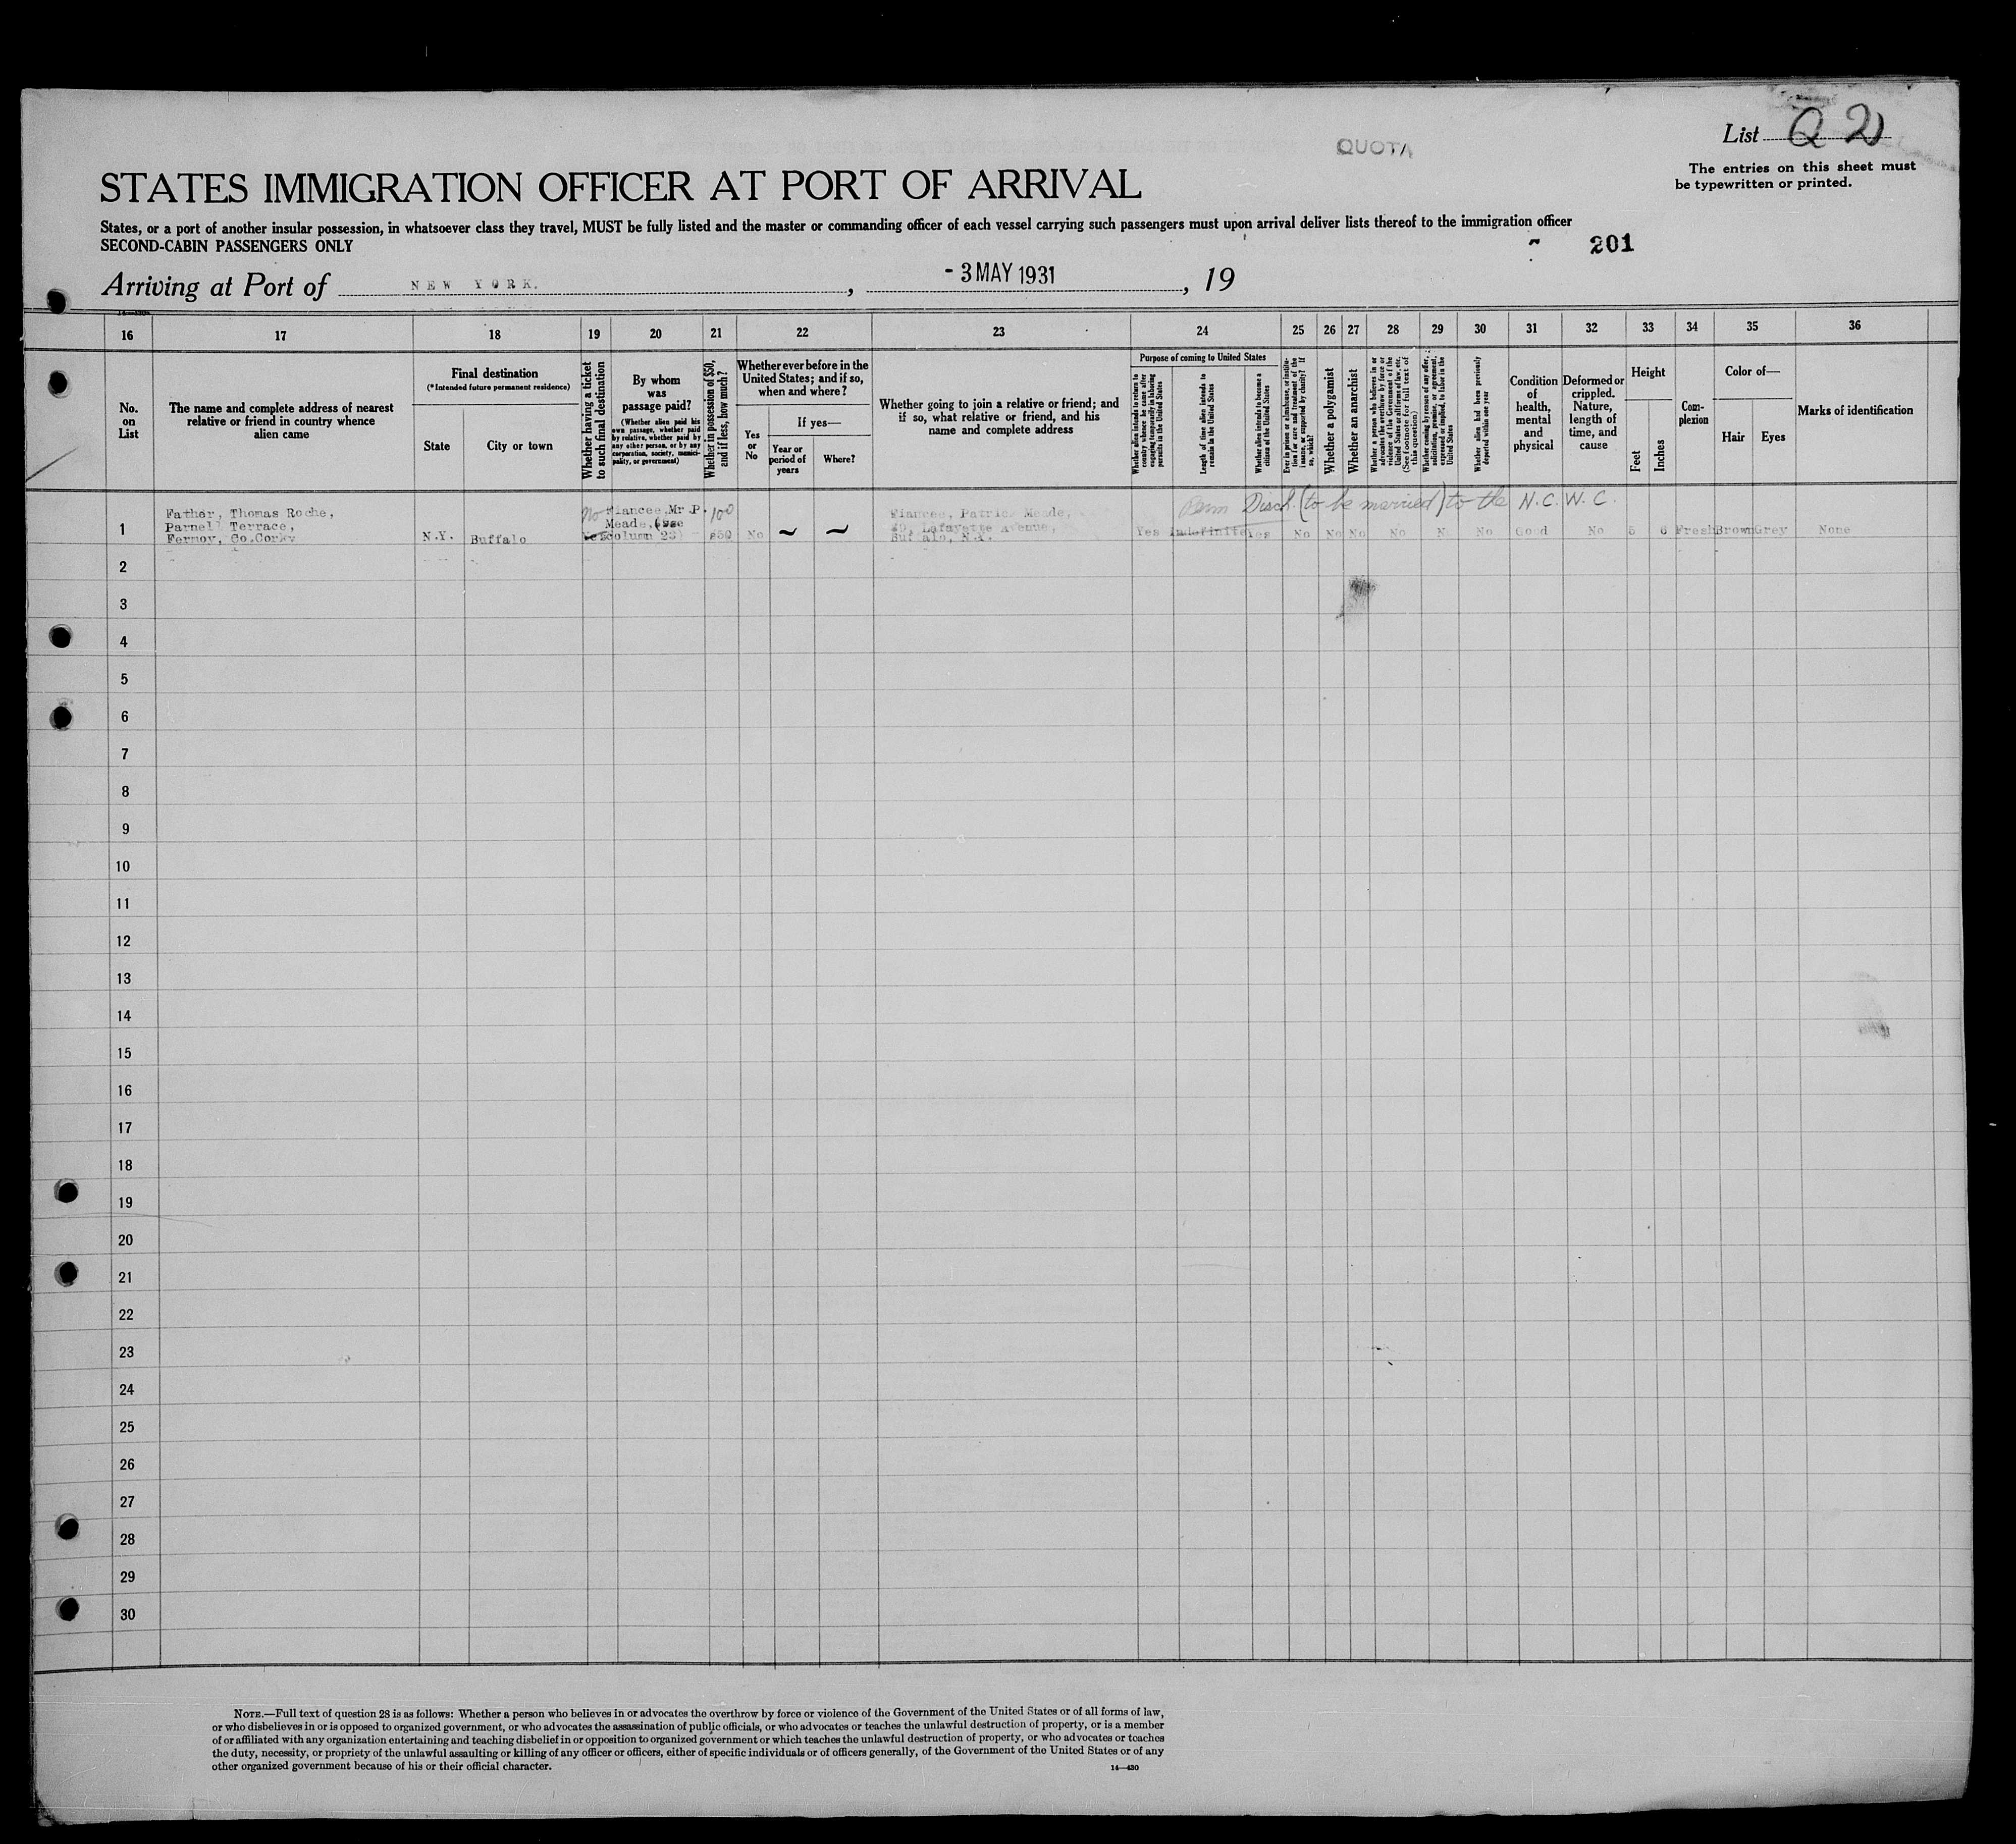 QUOTA
List Q 2
The entries on this sheet must
be typewritten or printed.
STATES IMMIGRATION OFFICER AT PORT OF ARRIVAL
States, or a port of another insular possession, in whatsoever class they travel, MUST be fully listed and the master or commanding officer of each vessel carrying such passengers must upon arrival deliver lists thereof to the immigration officer
SECOND-CABIN PASSENGERS ONLY
201
Arriving at Port of NEW YORK. , - 3 MAY 1931 , 19
16 17 18 19 20 21 22 23 24 25 26 27 28 29 30 31 32 33 34 35 36
No.
on
List
The name and complete address of nearest
relative or friend in country whence
alien came
Final destination
(*Intended future permanent residence)
State
City or town
Whether having a ticket
to such final destination
By whom
was
passage paid?
(Whether alien paid his
own passage, whether paid
by relative, whether paid by
any other person, or by any
corporation, society, munici-
pality, or government)
Whether in possession of $50,
and if less, how much?
Whether ever before in the
United States; and if so,
when and where?
Yes
or
No
If yes—
Year or
period of
years
Where?
Whether going to join a relative or friend; and
if so, what relative or friend, and his
name and complete address
Purpose of coming to United States
Whether alien intends to return to
country whence he came after
engaging temporarily in laboring
pursuits in the United States
Length of time alien intends to
remain in the United States
Whether alien intends to become a
citizen of the United States
Ever in prison or almshouse, or institu-
tion for care and treatment of the
insane, or supported by charity? If
so, which?
Whether a polygamist
Whether an anarchist
Whether a person who believes in or
advocates the overthrow by force or
violence of the Government of the
United States or all forms of law, etc.
(See footnote for full text of
this question)
Whether coming by reason of any offer,
solicitation, promise, or agreement,
expressed or implied, to labor in the
United States
Whether alien had been previously
deported within one year
Condition
of
health,
mental
and
physical
Deformed or
crippled.
Nature,
length of
time, and
cause
Height
Feet
Inches
Com-
plexion
Color of—
Hair
Eyes
Marks of identification
Perm Disch. (to be married) to the N.C.W.C.
1
Father, Thomas Roche,
Parnell Terrace,
Fermoy, Co.Cork.
N.Y.
Buffalo
No
Yes
Fiancee Mr P.
Meade, (see
column 23)
100
$50
No
Fiancee, Patrick Meade,
Lafayette Avenue,
Buffalo, N.Y.
Yes Indefinite Yes No No No No No No Good No 5 6 Fresh Brown Grey None
2
3
4
5
6
7
8
9
10
11
12
13
14
15
16
17
18
19
20
21
22
23
24
25
26
27
28
29
30
NOTE.—Full text of question 28 is as follows: Whether a person who believes in or advocates the overthrow by force or violence of the Government of the United States or of all forms of law,
or who disbelieves in or is opposed to organized government, or who advocates the assassination of public officials, or who advocates or teaches the unlawful destruction of property, or is a member
of or affiliated with any organization entertaining and teaching disbelief in or opposition to organized government or which teaches the unlawful destruction of property, or who advocates or teaches
the duty, necessity, or propriety of the unlawful assaulting or killing of any officer or officers, either of specific individuals or of officers generally, of the Government of the United States or of any
other organized government because of his or their official character.
14—430